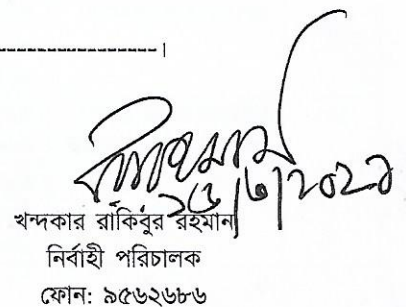 -----------------।
খন্দকার রাকিবুর রহমান
নির্বাহী পরিচালক
ফোন: ৯৫৬২৬৮৬